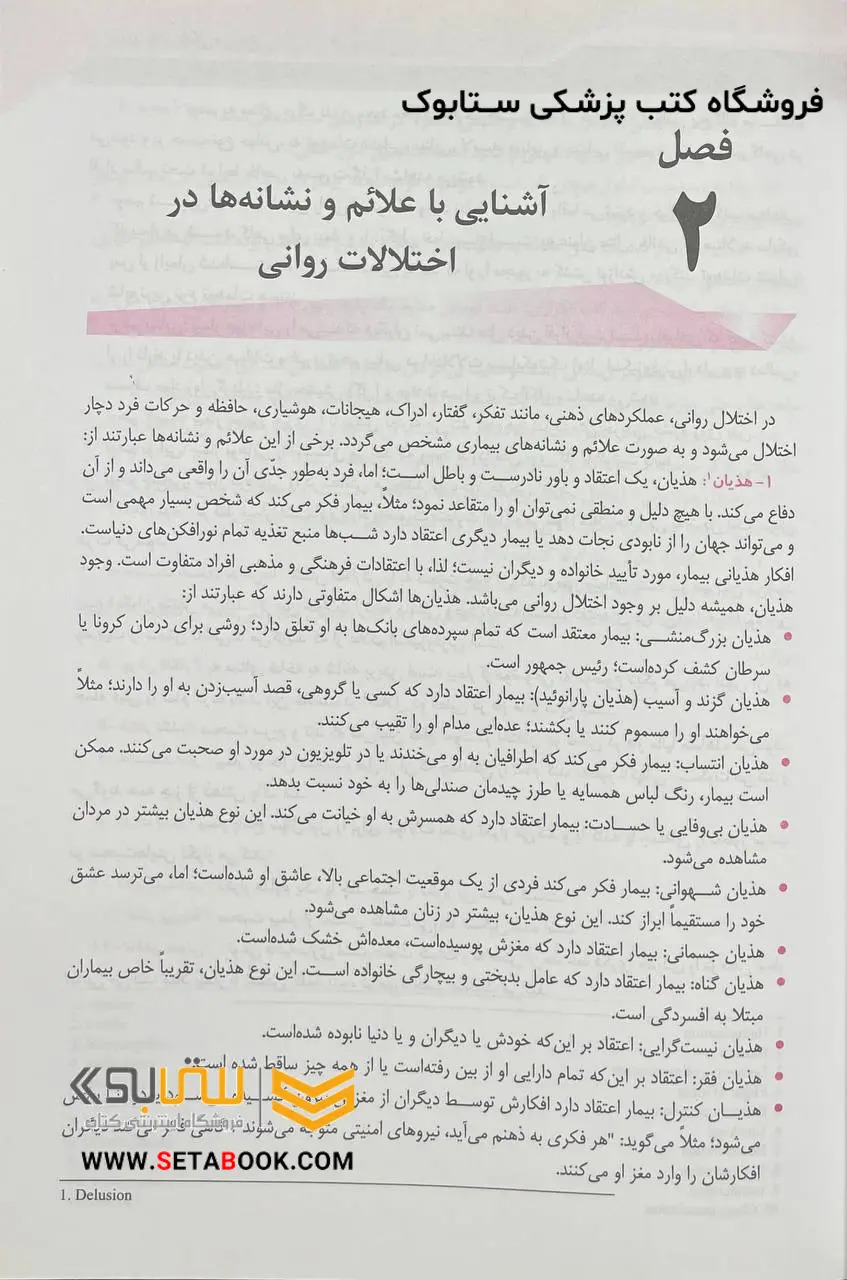 فروشگاه کتب پزشکی ستابوک
فصل
۲
آشنایی با علائم و نشانه‌ها در
اختلالات روانی
در اختلال روانی، عملکردهای ذهنی، مانند تفکر، گفتار، ادراک، هیجانات، هوشیاری، حافظه و حرکات فرد دچار
اختلال می‌شود و به صورت علائم و نشانه‌های بیماری مشخص می‌گردد. برخی از این علائم و نشانه‌ها عبارتند از:
۱- هذیان۱: هذیان، یک اعتقاد و باور نادرست و باطل است؛ اما، فرد به‌طور جدّی آن را واقعی می‌داند و از آن
دفاع می‌کند. با هیچ دلیل و منطقی نمی‌توان او را متقاعد نمود؛ مثلاً، بیمار فکر می‌کند که شخص بسیار مهمی است
و می‌تواند جهان را از نابودی نجات دهد یا بیمار دیگری اعتقاد دارد شب‌ها منبع تغذیه تمام نورافکن‌های دنیاست.
افکار هذیانی بیمار، مورد تأیید خانواده و دیگران نیست؛ لذا، با اعتقادات فرهنگی و مذهبی افراد متفاوت است. وجود
هذیان، همیشه دلیل بر وجود اختلال روانی می‌باشد. هذیان‌ها اشکال متفاوتی دارند که عبارتند از:
• هذیان بزرگ‌منشی: بیمار معتقد است که تمام سپرده‌های بانک‌ها به او تعلق دارد؛ روشی برای درمان کرونا یا
سرطان کشف کرده‌است؛ رئیس جمهور است.
• هذیان گزند و آسیب (هذیان پارانوئید): بیمار اعتقاد دارد که کسی یا گروهی، قصد آسیب‌زدن به او را دارند؛ مثلاً
می‌خواهند او را مسموم کنند یا بکشند؛ عده‌ایی مدام او را تقیب می‌کنند.
• هذیان انتساب: بیمار فکر می‌کند که اطرافیان به او می‌خندند یا در تلویزیون در مورد او صحبت می‌کنند. ممکن
است بیمار، رنگ لباس همسایه یا طرز چیدمان صندلی‌ها را به خود نسبت بدهد.
• هذیان بی‌وفایی یا حسادت: بیمار اعتقاد دارد که همسرش به او خیانت می‌کند. این نوع هذیان بیشتر در مردان
مشاهده می‌شود.
• هذیان شهوانی: بیمار فکر می‌کند فردی از یک موقعیت اجتماعی بالا، عاشق او شده‌است؛ اما، می‌ترسد عشق
خود را مستقیماً ابراز کند. این نوع هذیان، بیشتر در زنان مشاهده می‌شود.
• هذیان جسمانی: بیمار اعتقاد دارد که مغزش پوسیده‌است، معده‌اش خشک شده‌است.
• هذیان گناه: بیمار اعتقاد دارد که عامل بدبختی و بیچارگی خانواده است. این نوع هذیان، تقریباً خاص بیماران
مبتلا به افسردگی است.
• هذیان نیست‌گرایی: اعتقاد بر این‌که خودش یا دیگران و یا دنیا نابوده شده‌است.
• هذیان فقر: اعتقاد بر این‌که تمام دارایی او از بین رفته‌است یا از همه چیز ساقط شده است.
• هذیان کنترل: بیمار اعتقاد دارد افکارش توسط دیگران از مغز
می‌شود؛ مثلاً می‌گوید: "هر فکری به ذهنم می‌آید، نیروهای امنیتی متوجه می‌شوند
افکارشان را وارد مغز او می‌کنند.
ستابوک
فروشگاه اینترنتی کتاب
WWW.SETABOOK.COM
1. Delusion